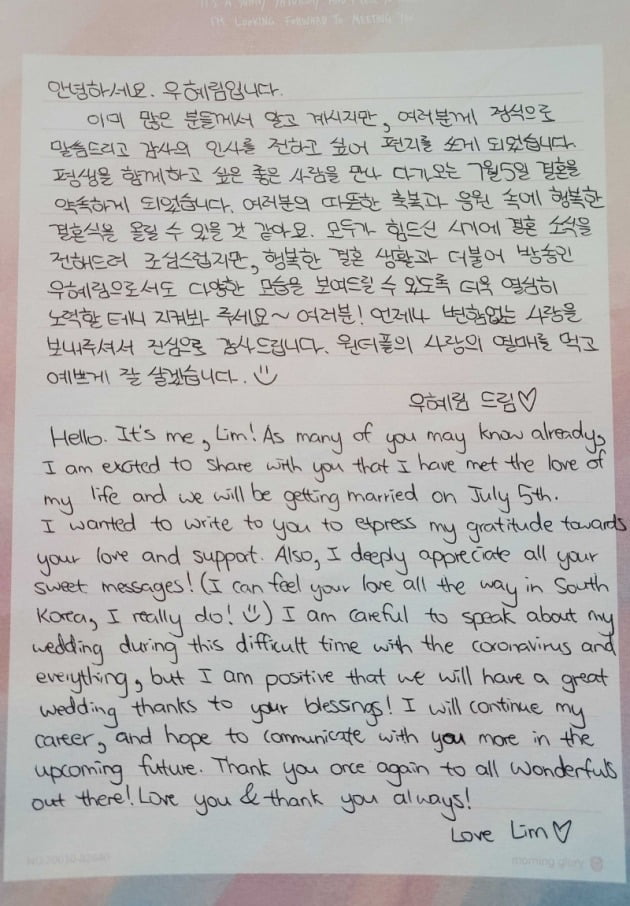 I'M LOOKING FORWARD TO MEETING YOU
안녕하세요. 우혜림입니다.
이미 많은 분들께서 알고 계시지만, 여러분께 정식으로
말씀드리고 감사의 인사를 전하고 싶어 편지를 쓰게 되었습니다.
평생을 함께하고 싶은 좋은 사람을 만나 다가오는 7월5일 결혼을
약속하게 되었습니다. 여러분의 따뜻한 축복과 응원 속에 행복한
결혼식을 올릴 수 있을 것 같아요. 모두가 힘드신 시기에 결혼 소식을
전해드려 조심스럽지만, 행복한 결혼 생활과 더불어 방송인
우혜림으로서도 다양한 모습을 보여드릴 수 있도록 더욱 열심히
노력할 테니 지켜봐 주세요~ 여러분! 언제나 변함없는 사랑을
보내주셔서 진심으로 감사드립니다. 원더풀의 사랑의 열매를 먹고
예쁘게 잘 살겠습니다. :)
우혜림 드림♡
Hello. It's me, Lim! As many of you may know already,
I am excited to share with you that I have met the love of
my life and we will be getting married on July 5th.
I wanted to write to you to express my gratitude towards
your love and support. Also, I deeply appreciate all your
sweet messages! (I can feel your love all the way in South
Korea, I really do! :)) I am careful to speak about my
wedding during this difficult time with the coronavirus and
everything, but I am positive that we will have a great
wedding thanks to your blessings! I will continue my
career, and hope to communicate with you more in the
upcoming future. Thank you once again to all Wonderfuls
out there! Love you & thank you always!
Love Lim♡
morning glory